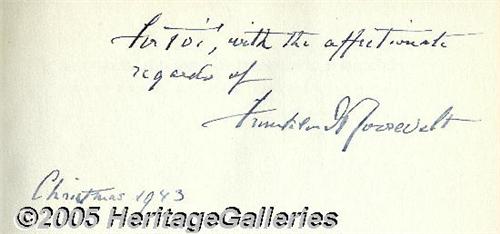 with the affectionate
regards of
Franklin D Roosevelt
Christmas 1943
©2005 HeritageGalleries